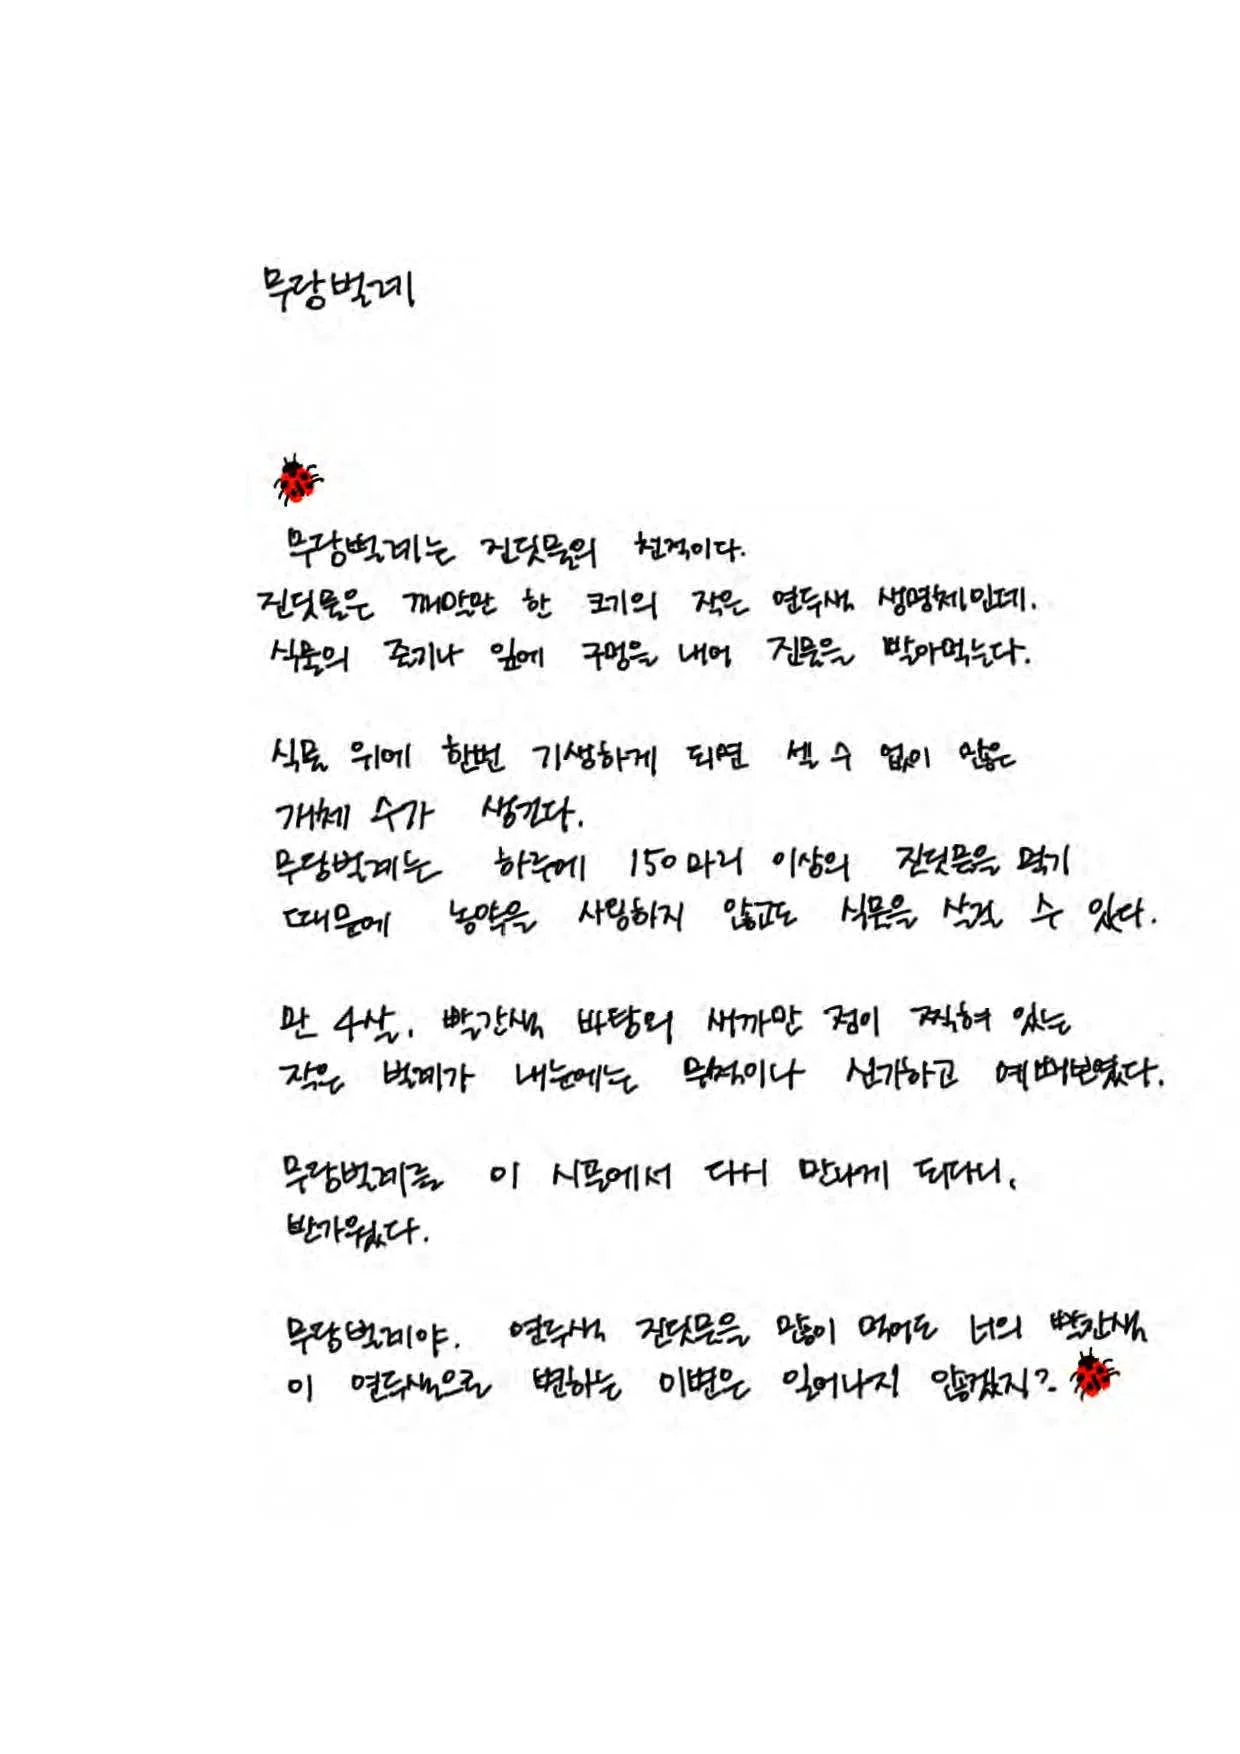 무당벌레
무당벌레는 진딧물의 천적이다.
진딧물은 깨알만 한 크기의 작은 연두색 생명체인데.
식물의 줄기나 잎에 구멍을 내어 진물을 빨아먹는다.
식물 위에 한번 기생하게 되면 셀 수 없이 많은
개체 수가 생긴다.
무당벌레는 하루에 150마리 이상의 진딧물을 먹기
때문에 농약을 사용하지 않고도 식물을 살릴 수 있다.
만 4살. 빨간색 바탕의 새까만 점이 찍혀 있는
작은 벌레가 내눈에는 무척이나 신기하고 예뻐보였다.
무당벌레를 이 시골에서 다시 만나게 되다니.
반가웠다.
무당벌레야. 연두색 진딧물을 많이 먹어도 너의 빨간색
이 연두색으로 변하는 이변은 일어나지 않겠지?